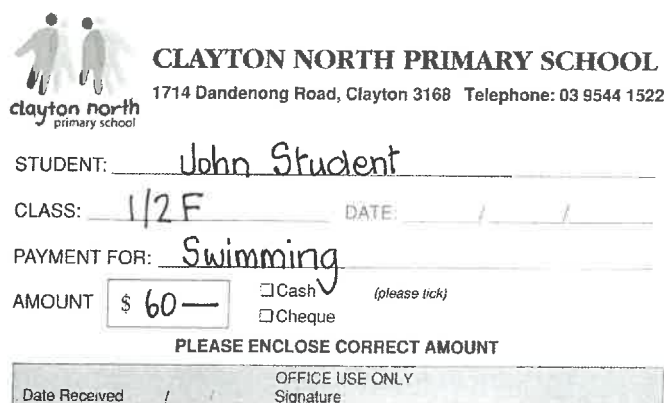 clayton north
primary school
CLAYTON NORTH PRIMARY SCHOOL
1714 Dandenong Road, Clayton 3168 Telephone: 03 9544 1522
STUDENT: John Student
CLASS: 1/2 F DATE: / /
PAYMENT FOR: Swimming
AMOUNT $ 60— ☐Cash ✓ (please tick)
☐Cheque
PLEASE ENCLOSE CORRECT AMOUNT
OFFICE USE ONLY
Date Received / / Signature